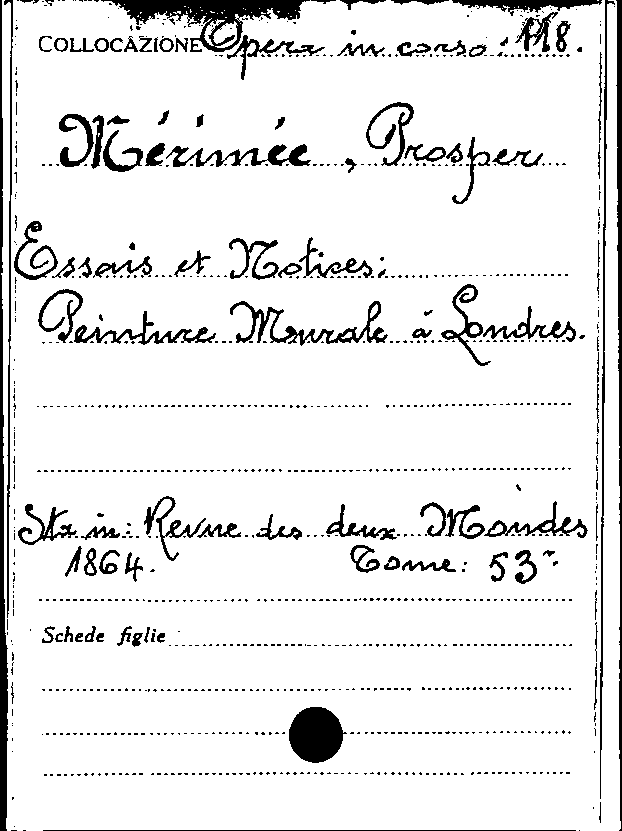 COLLOCAZIONE Opera in corso: 118.
Mérimée, Prosper
Essais et Notices:
Peinture Murale à Londres.
Sta in: Revue des deux Mondes
1864. Tome: 53
Schede figlie